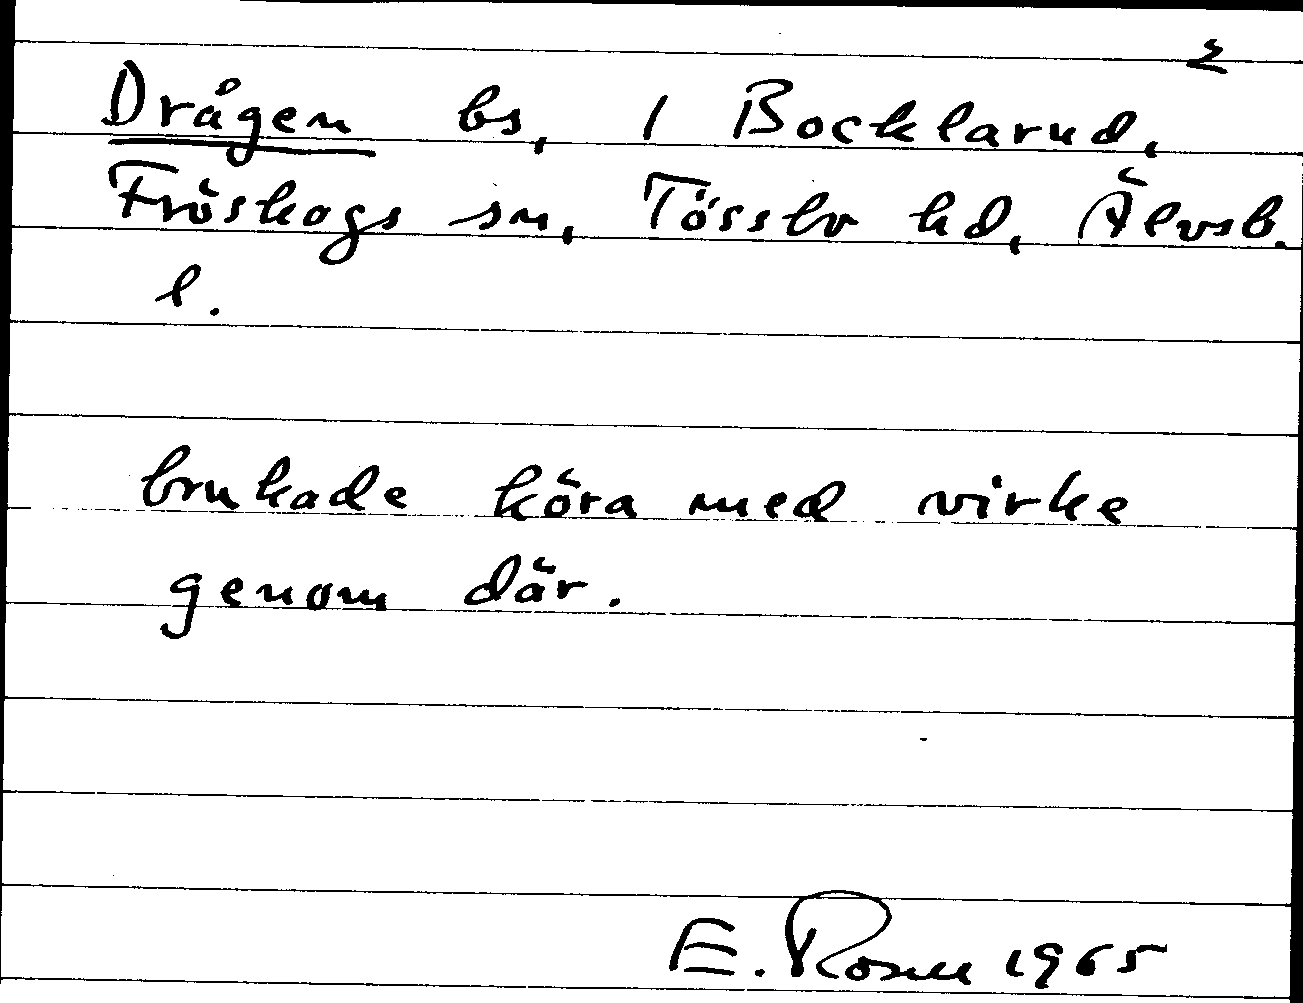 2
Drågen bs, 1 Bocklarud,
Fröskogs sn, Tössbo hd, Älvsb.
l.
brukade köra med virke
genom där.
E. Rosell 1965